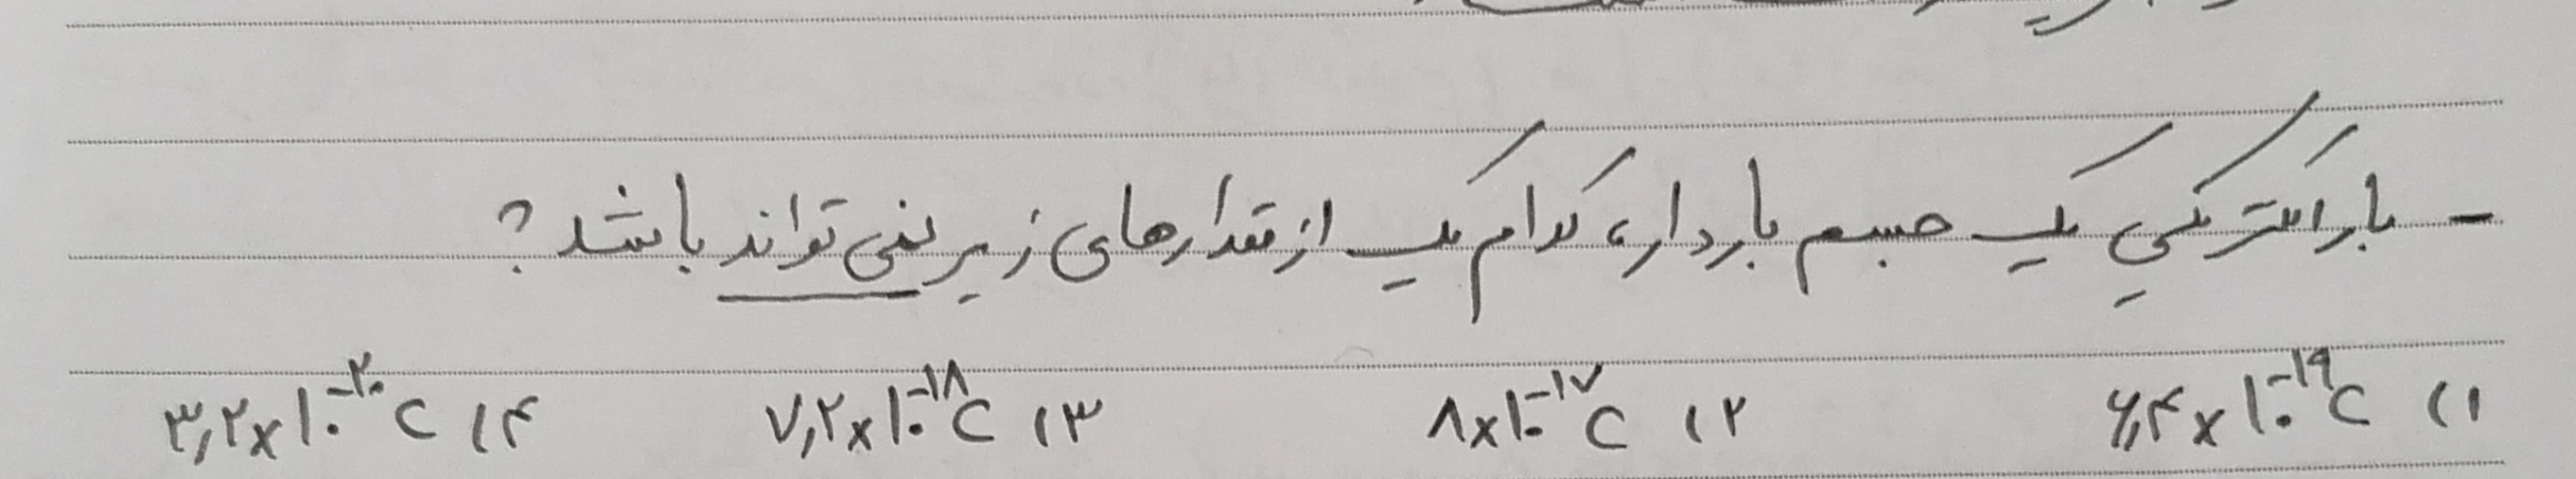 - بار الکتریکی یک جسم باردار، کدام یک از مقدارهای زیر نمی تواند باشد؟
۱) ۶٫۴×۱۰^-۱۹ C ۲) ۸×۱۰^-۱۷ C ۳) ۷٫۲×۱۰^-۱۸ C ۴) ۳٫۲×۱۰^-۲۰ C